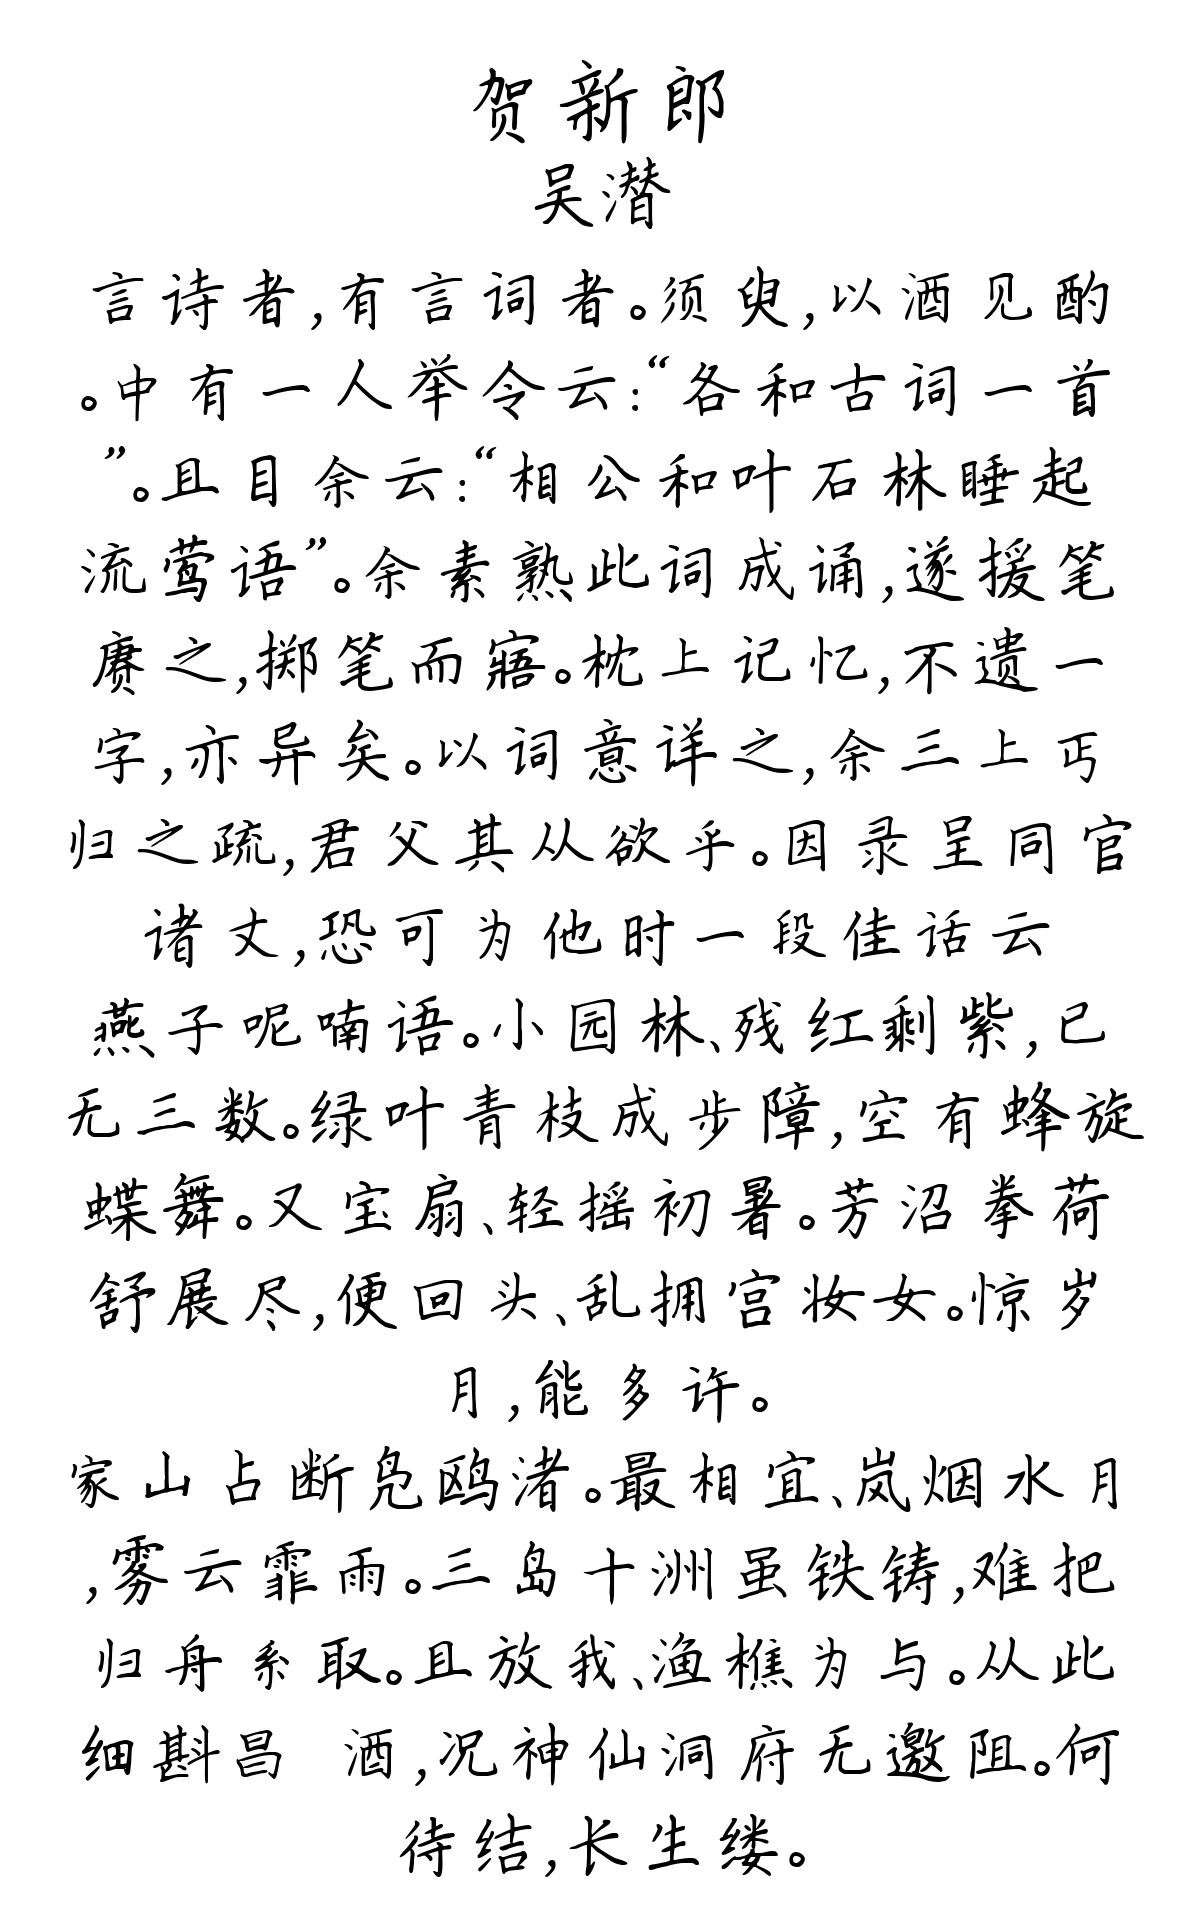 贺新郎
吴潜
言诗者,有言词者。须臾,以酒见酌
。中有一人举令云:“各和古词一首
”。且目余云:“相公和叶石林睡起
流莺语”。余素熟此词成诵,遂援笔
赓之,掷笔而寤。枕上记忆,不遗一
字,亦异矣。以词意详之,余三上丐
归之疏,君父其从欲乎。因录呈同官
诸丈,恐可为他时一段佳话云
燕子呢喃语。小园林、残红剩紫,已
无三数。绿叶青枝成步障,空有蜂旋
蝶舞。又宝扇、轻摇初暑。芳沼拳荷
舒展尽,便回头、乱拥宫妆女。惊岁
月,能多许。
家山占断凫鸥渚。最相宜、岚烟水月
,雾云霏雨。三岛十洲虽铁铸,难把
归舟系取。且放我、渔樵为与。从此
细斟昌 酒,况神仙洞府无邀阻。何
待结,长生缕。